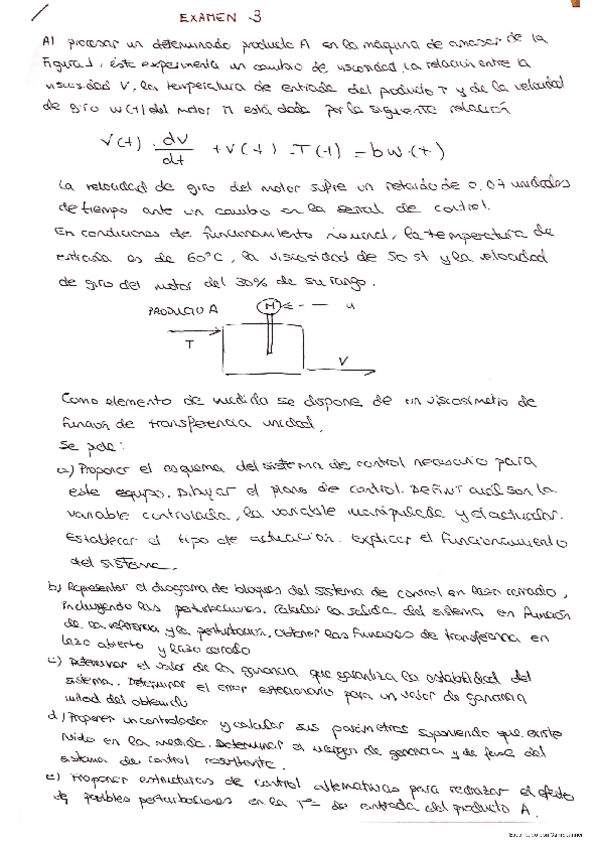 EXAMEN 3
Al procesar un determinado producto A en la máquina de amasar de la
Figura 1, éste experimenta un cambio de viscosidad. La relación entre la
viscosidad V, la temperatura de entrada del producto T y de la velocidad
de giro w(t) del motor M está dada por la siguiente relación
V(t) · dv/dt + v(t) - T(t) = bw·(t)
La velocidad de giro del motor sufre un retardo de 0.07 unidades
de tiempo ante un cambio en la señal de control.
En condiciones de funcionamiento nominal, la temperatura de
entrada es de 60°C, la viscosidad de 50 st y la velocidad
de giro del motor del 30% de su rango.
PRODUCTO A M u
T V
Como elemento de medida se dispone de un viscosímetro de
función de transferencia unidad.
Se pide:
a) Proponer el esquema del sistema de control necesario para
este equipo. Dibujar el plano de control. Definir cuál son la
variable controlada, la variable manipulada y el actuador.
Establecer el tipo de actuación. Explicar el funcionamiento
del sistema.
b) Representar el diagrama de bloques del sistema de control en lazo cerrado,
incluyendo las perturbaciones. Calcular la salida del sistema en función
de la referencia y la perturbación. Obtener las funciones de transferencia en
lazo abierto y lazo cerrado
c) Determinar el valor de la ganancia que garantiza la estabilidad del
sistema. Determinar el error estacionario para un valor de ganancia
mitad del obtenido
d) Proponer un controlador y calcular sus parámetros suponiendo que existe
ruido en la medida. Determinar el margen de ganancia y de fase del
sistema de control resultante.
e) Proponer estructuras de control alternativas para rechazar el efecto
de posibles perturbaciones en la Tª de entrada del producto A.